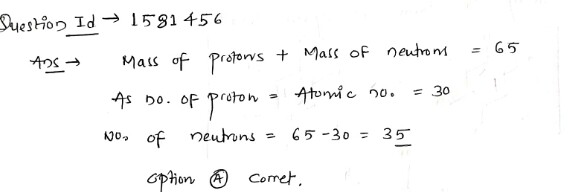 Question Id → 1581456
Ans → Mass of protons + Mass of neutrons = 65
As no. of proton = Atomic no. = 30
No. of neutrons = 65-30 = 35
option Ⓐ Correct.